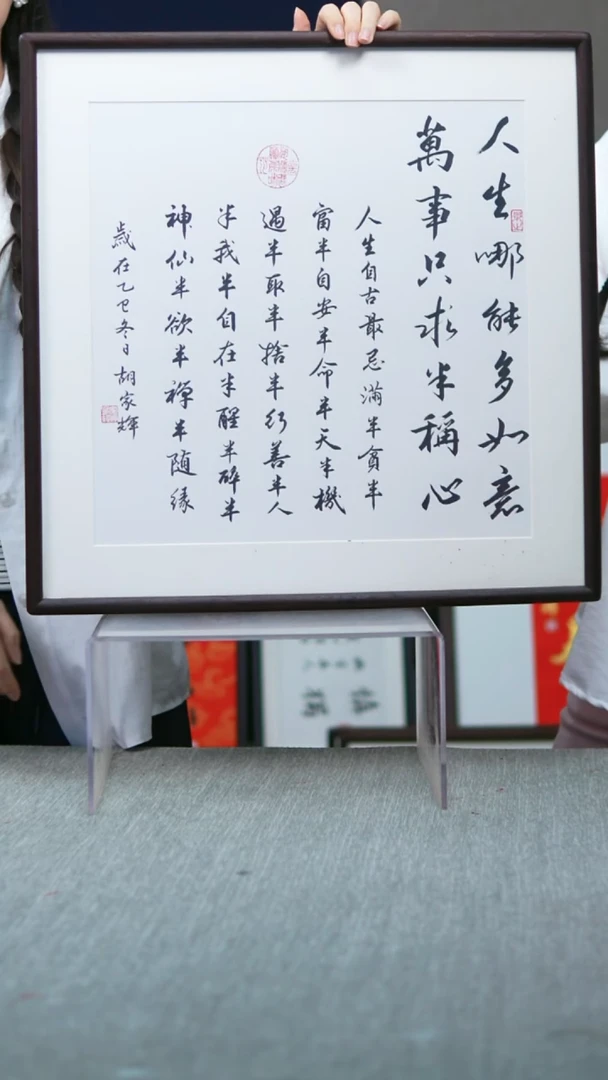 人生哪能多如意
萬事只求半稱心
人生自古最忌滿半貧半
富半自安半命半天半機
遇半取半捨半行善半人
半我半自在半醒半醉半
神仙半欲半禪半随缘
歲在乙巳冬日胡家輝